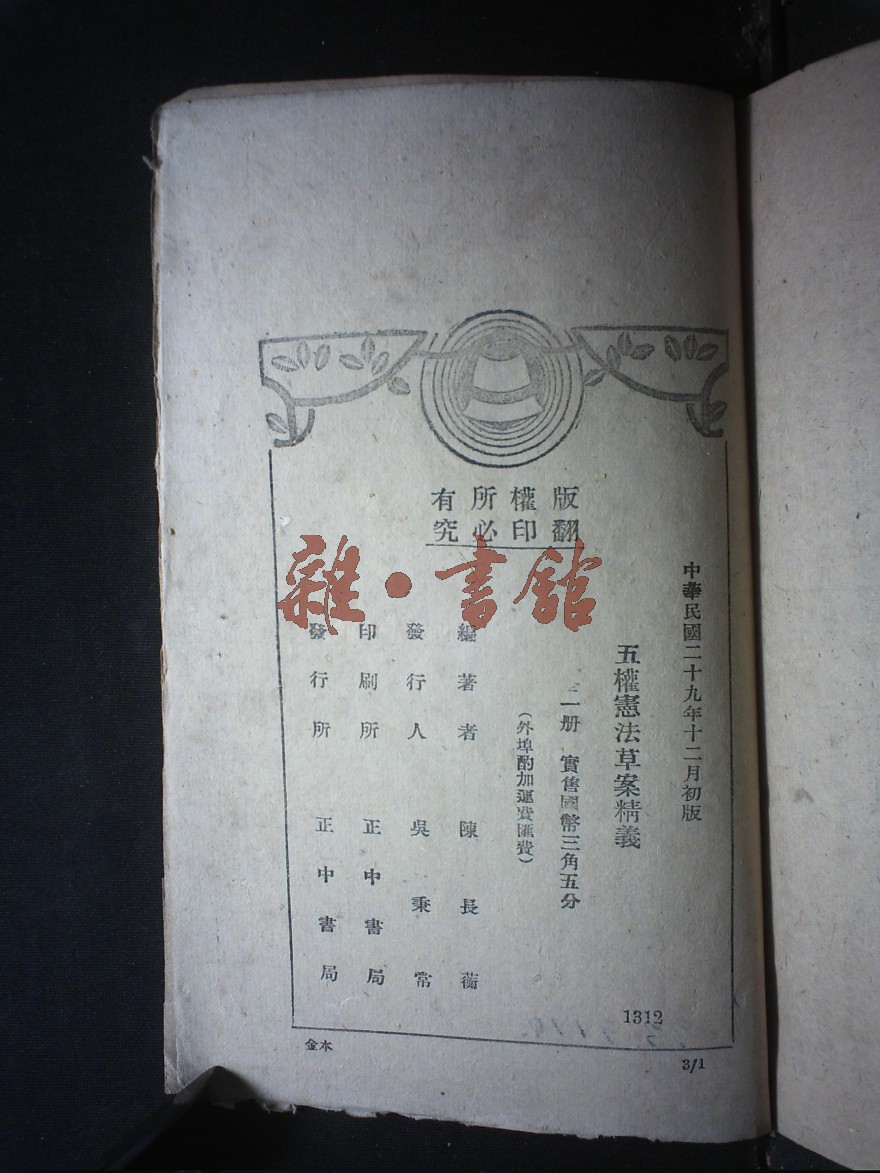 版權所有
翻印必究
中華民國二十九年十二月初版
五權憲法草案精義
一册 實售國幣三角五分
(外埠酌加運費匯費)
編著者 陳長蘅
發行人 吳秉常
印刷所 正中書局
發行所 正中書局
雜·書館
1312
金本
3/1